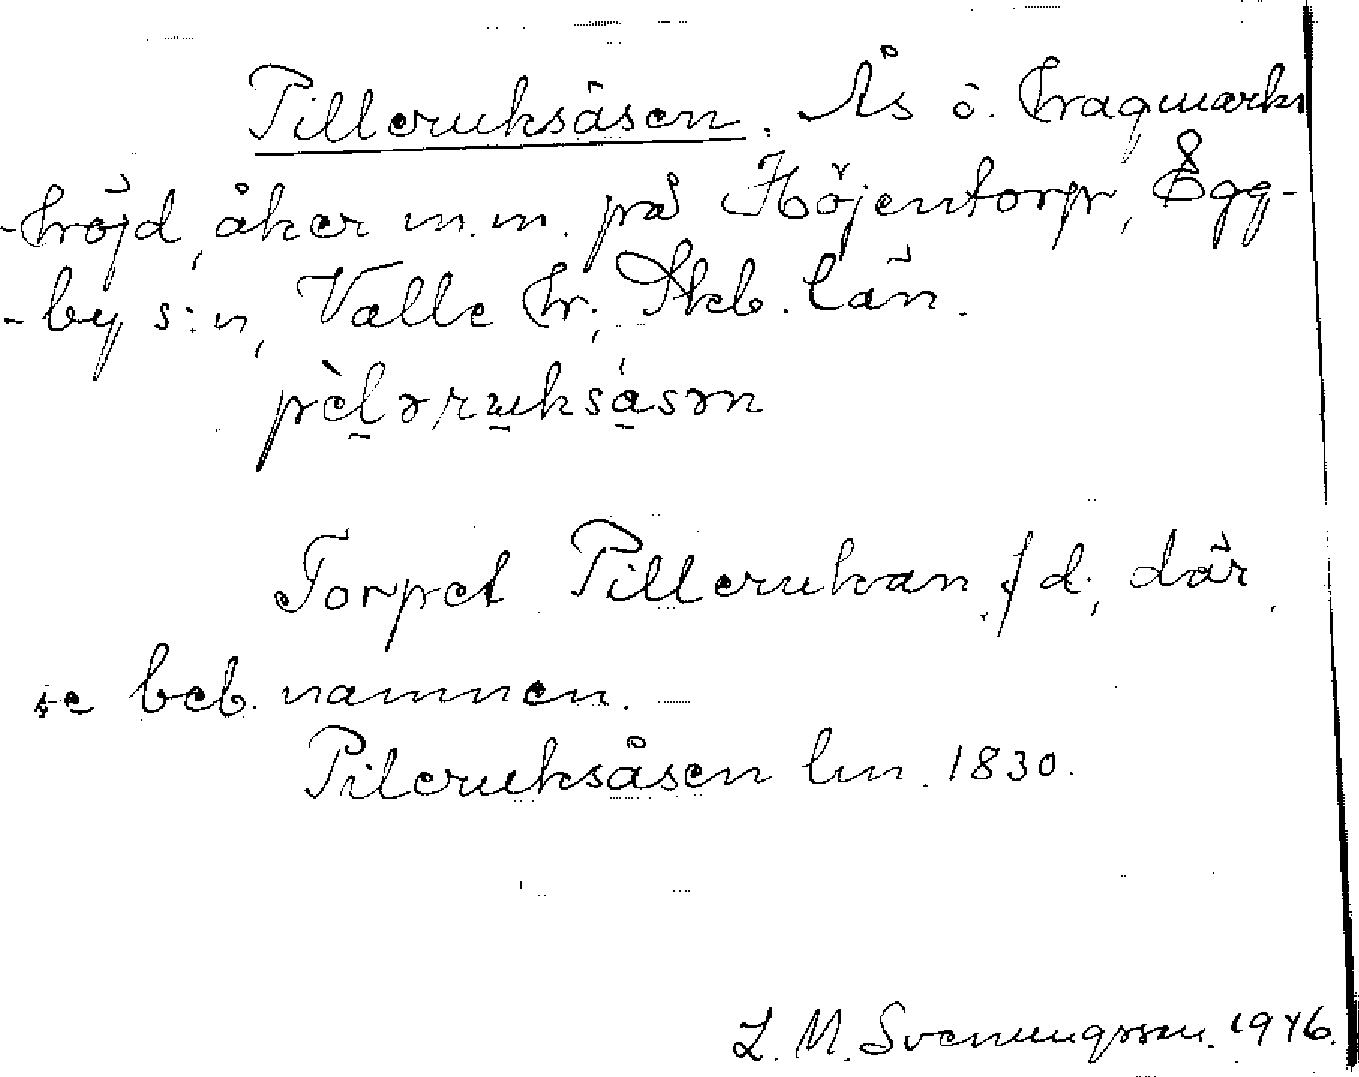 Tilleruksåsen. Ås o. hagmarks
-höjd, åker m.m. på Höjentorp, Egg-
-by s:n, Valle hr, Skb. län.
Torpet Tillerukan f d, där,
se beb. namnen.
Pileruksåsen lm. 1830.
L. M. Svenungsson. 1946.